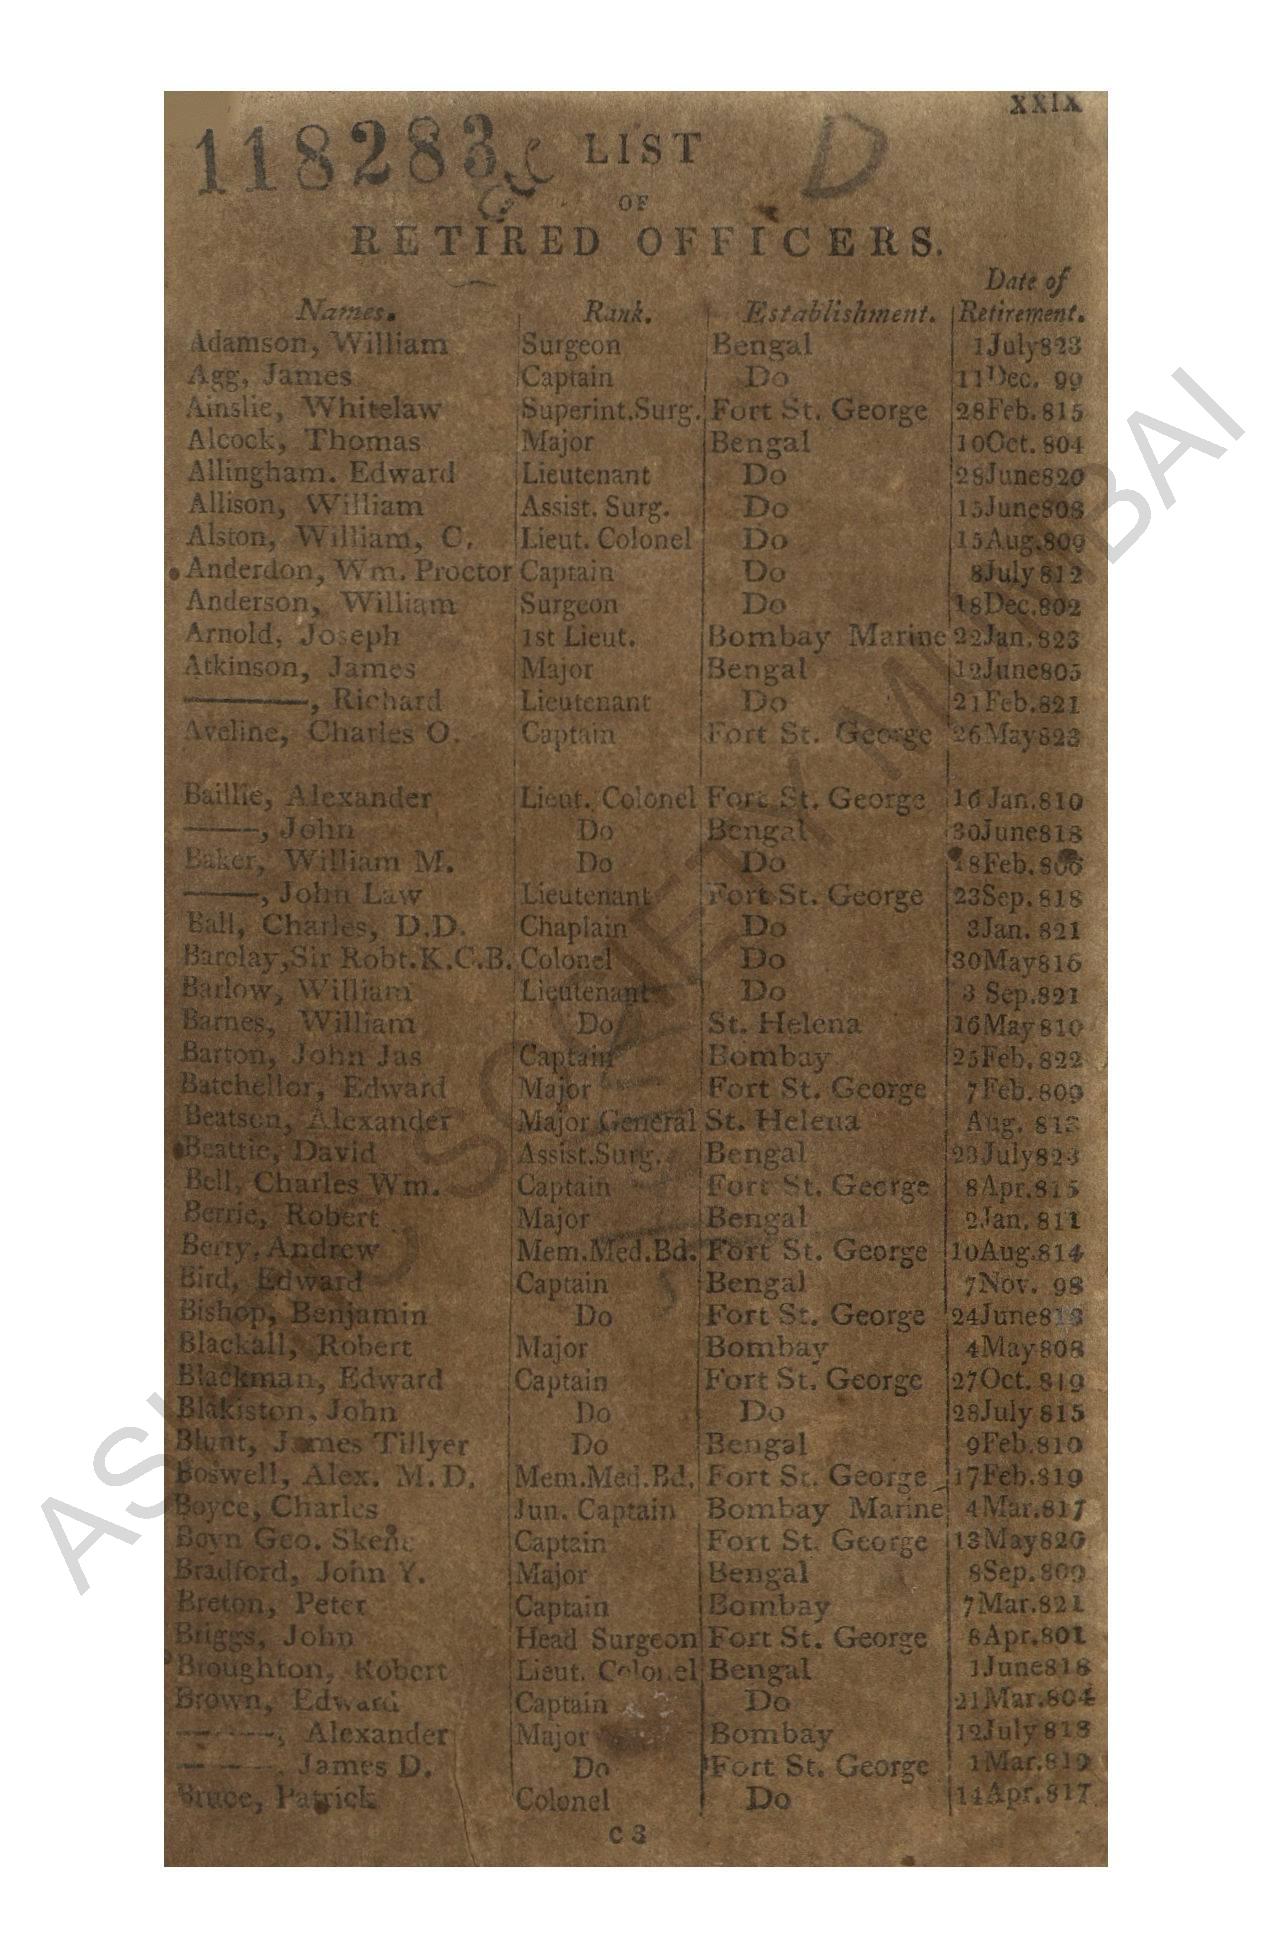 xxix
118283
LIST
D
OF
RETIRED OFFICERS.
Date of
Names. Rank. Establishment. Retirement.
Adamson, William Surgeon Bengal 1July823
Agg, James Captain Do 11Dec. 99
Ainslie, Whitelaw Superint.Surg. Fort St. George 28Feb. 815
Alcock, Thomas Major Bengal 10Oct. 804
Allingham. Edward Lieutenant Do 28June820
Allison, William Assist. Surg. Do 15June808
Alston, William, C. Lieut. Colonel Do 15Aug.809
Anderdon, Wm. Proctor Captain Do 8July812
Anderson, William Surgeon Do 18Dec.802
Arnold, Joseph 1st Lieut. Bombay Marine 22Jan.823
Atkinson, James Major Bengal 12June805
———, Richard Lieutenant Do 21Feb.821
Aveline, Charles O. Captain Fort St. George 26May823
Baillie, Alexander Lieut. Colonel Fort St. George 16Jan.810
———, John Do Bengal 30June818
Baker, William M. Do Do 18Feb.806
———, John Law Lieutenant Fort St. George 23Sep. 818
Ball, Charles, D.D. Chaplain Do 3Jan. 821
Barclay,Sir Robt.K.C.B. Colonel Do 30May816
Barlow, William Lieutenant Do 3 Sep.821
Barnes, William Do St. Helena 16May810
Barton, John Jas Captain Bombay 25Feb. 822
Batchellor, Edward Major Fort St. George 7Feb.809
Beatson, Alexander Major General St. Helena Aug. 813
Beattie, David Assist.Surg. Bengal 23July823
Bell, Charles Wm. Captain Fort St. George 8Apr.815
Berrie, Robert Major Bengal 2Jan. 811
Berry, Andrew Mem.Med.Bd. Fort St. George 10Aug.814
Bird, Edward Captain Bengal 7Nov. 98
Bishop, Benjamin Do Fort St. George 24June818
Blackall, Robert Major Bombay 4May808
Blackman, Edward Captain Fort St. George 27Oct. 819
Blakiston, John Do Do 28July815
Blunt, James Tillyer Do Bengal 9Feb.810
Boswell, Alex. M.D. Mem.Med.Bd. Fort St. George 17Feb.819
Boyce, Charles Jun. Captain Bombay Marine 4Mar.817
Boyn Geo. Skene Captain Fort St. George 13May820
Bradford, John Y. Major Bengal 8Sep.809
Breton, Peter Captain Bombay 7Mar.821
Briggs, John Head Surgeon Fort St. George 8Apr.801
Broughton, Robert Lieut. Colonel Bengal 1June818
Brown, Edward Captain Do 21Mar.804
———, Alexander Major Bombay 12July818
———, James D. Do Fort St. George 1Mar.819
Bruce, Patrick Colonel Do 14Apr.817
C 3